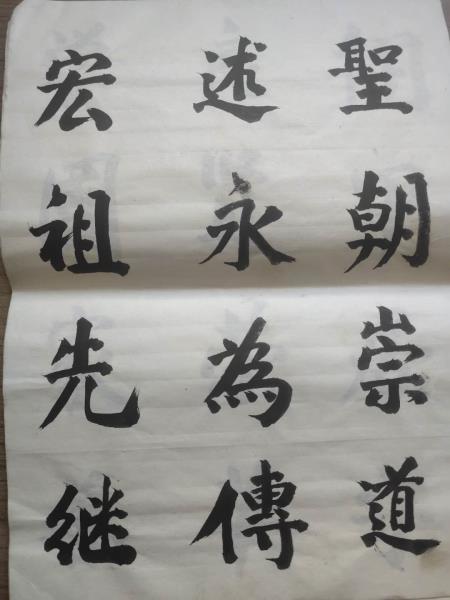 聖朝崇道
述永為傳
宏祖先继